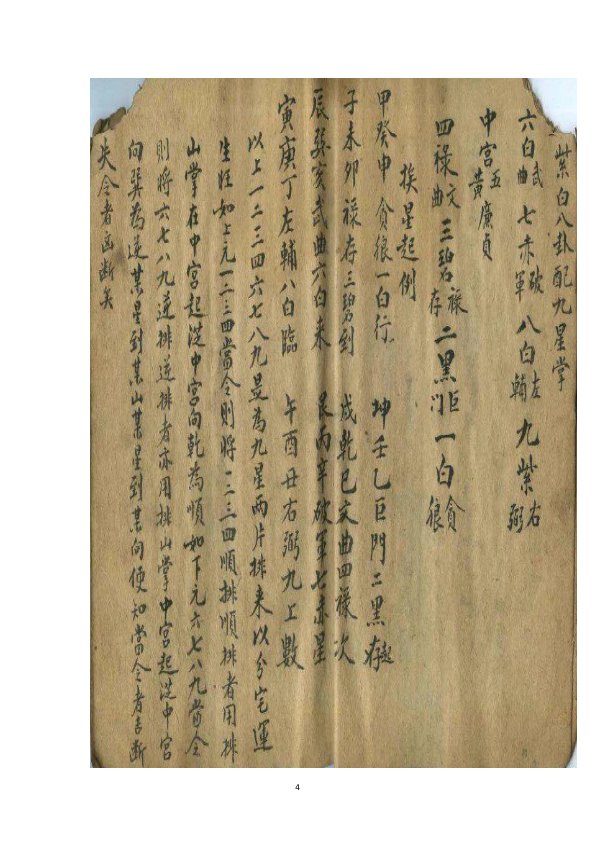 紫白八卦配九星掌
六白武曲 七赤破軍 八白左輔 九紫右弼
中宮五黃廉貞
四祿文曲 三碧祿存 二黑巨門 一白貪狼
挨星起例
甲癸申 貪狼一白行 坤壬乙巨門二黑存起
子未卯祿存三碧到 戌乾巳文曲四祿次
辰巽亥武曲六白來 艮丙辛破軍七赤星
寅庚丁左輔八白臨 午酉丑右弼九上數
以上一二三四六七八九是為九星兩片排來以分宅運
生旺如上元一二三四當令則將一二三四順排順排者用排
山掌在中宮起從中宮向乾為順如下元六七八九當令
則將六七八九逆排逆排者亦用排山掌中宮起從中宮
向巽為逆某星到某山某星到某向便知當令者吉斷
失令者凶斷矣
4